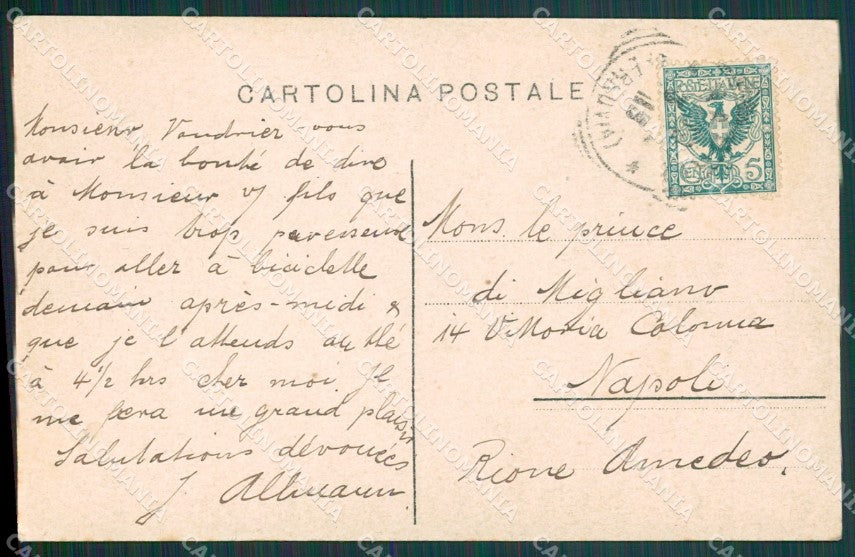 CARTOLINA POSTALE
POSTE ITALIANE
CENT. 5
Monsieur Vaudrier vous
avoir la bonté de dire
à Monsieur v/ fils que
je suis trop paresseuse
pour aller à biciclette
demain après-midi &
que je l'attends au thé
à 4 1/2 hrs cher moi. Il
me fera un grand plaisir
Salutations dévouées
J. Allmann.
Mons. le prince
di Migliano
14 Vittoria Colonna
Napoli
Rione Amedeo.
CARTOLINOMANIA